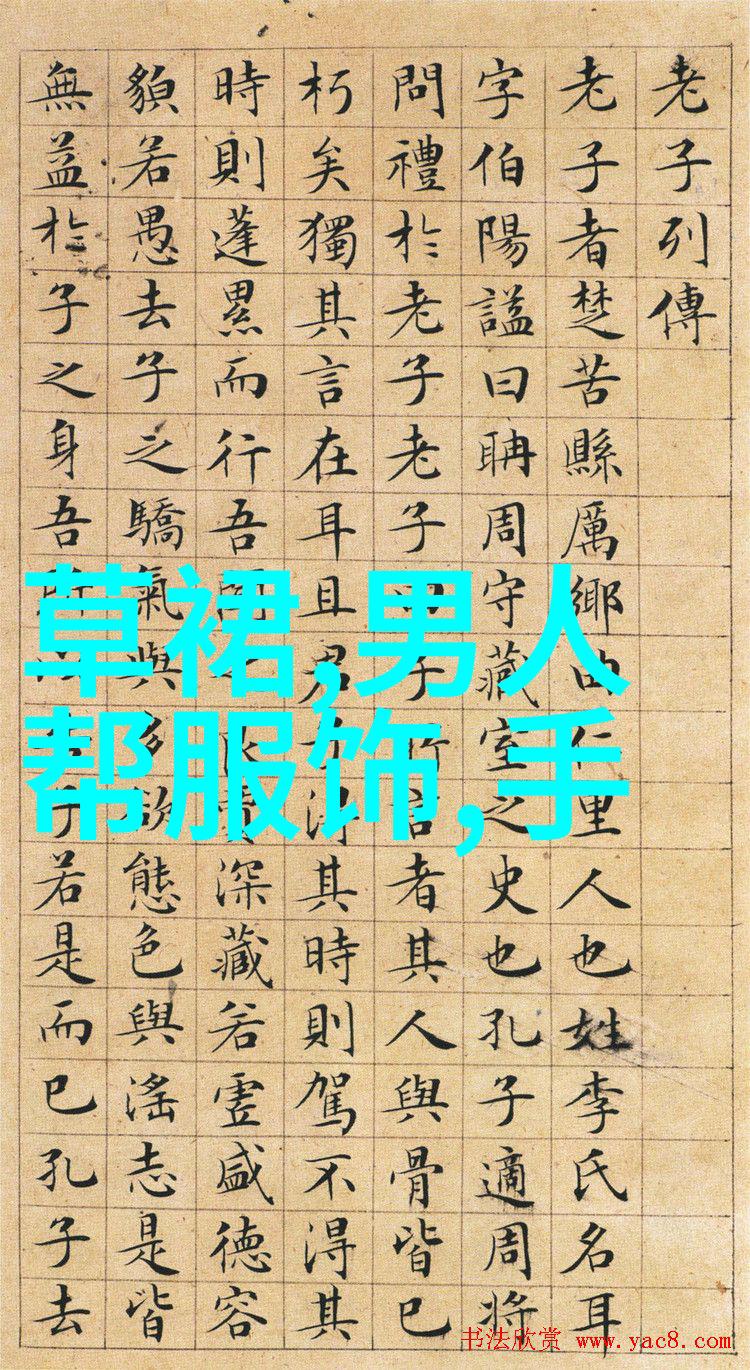 老子列傳
老子者楚苦縣厲鄉曲仁里人也姓李氏名耳
字伯陽謚曰聃周守藏室之史也孔子適周將
問禮於老子老子子所言者其人與骨皆已
朽矣獨其言在耳且君得其時則駕不得其
時則蓬累而行吾良賈深藏若虛盛德容
貌若愚去子之驕氣與多欲態色與淫志是皆
無益於子之身吾子若是而已孔子去
草裙,男人
帮服饰,手
书法欣赏 www.yac8.com